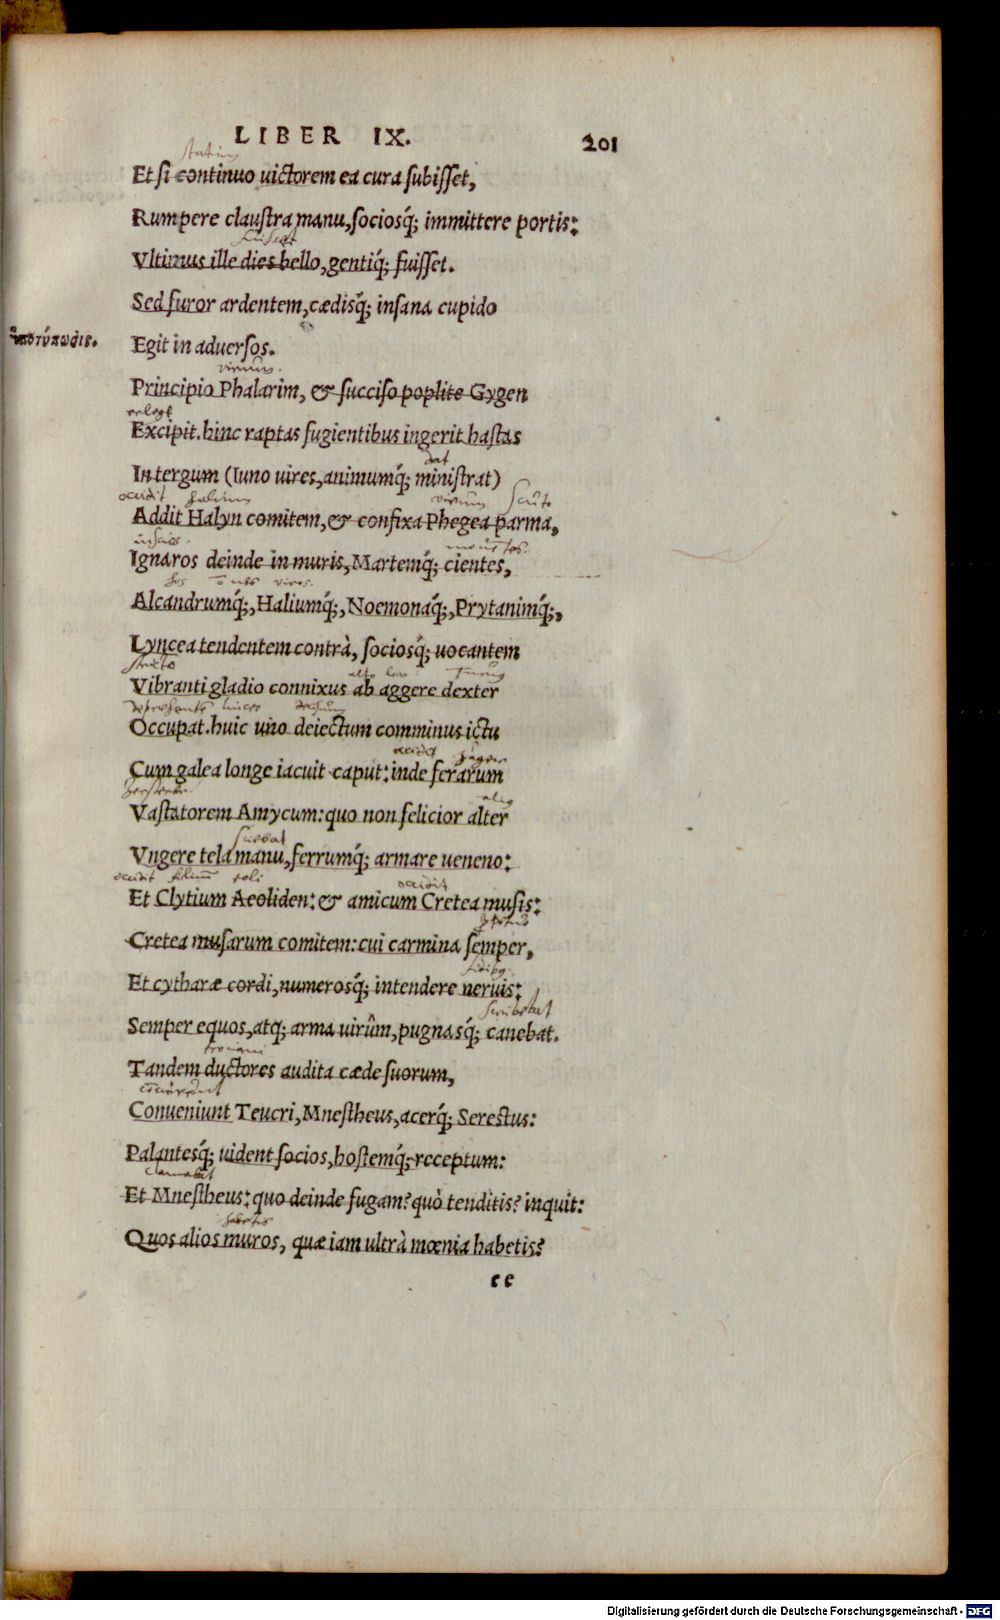 LIBER IX. 201
statim
Et si continuo uictorem ea cura subisset,
Rumpere claustra manu, sociosq́; immittere portis:
fuisset
Vltimus ille dies bello, gentiq́; fuisset.
Sed furor ardentem, cædisq́; insana cupido
ὑποτύπωσις.
Egit in aduersos.
virum.
Principio Phalarim, & succiso poplite Gygen
Excipit. hinc raptas fugientibus ingerit hastas
dat
In tergum (Iuno uires, animumq́; ministrat)
occidit virum scuto
Addit Halyn comitem, & confixa Phegea parma,
inscios
Ignaros deinde in muris, Martemq́; cientes,
hos viros.
Alcandrumq́;, Haliumq́;, Noemonaq́;, Prytanimq́;,
Lyncea tendentem contrà, sociosq́; uocantem
stricto alto loco
Vibranti gladio connixus ab aggere dexter
Occupat. huic uno deiectum comminus ictu
Cum galea longe iacuit caput: inde ferarum
alius
Vastatorem Amycum: quo non felicior alter
Vngere tela manu, ferrumq́; armare ueneno:
occidit filium occidit
Et Clytium Aeoliden: & amicum Cretea musis:
Cretea musarum comitem: cui carmina semper,
Et cytharæ cordi, numerosq́; intendere neruis:
scribebat
Semper equos, atq; arma uirûm, pugnasq́; canebat.
troiani
Tandem ductores audita cæde suorum,
Conueniunt Teucri, Mnestheus, acerq́; Serestus:
Palantesq́; uident socios, hostemq́; receptum:
clamabat
Et Mnestheus: quo deinde fugam? quò tenditis? inquit:
habetis
Quos alios muros, quæ iam ultrà mœnia habetis?
cc
Digitalisierung gefördert durch die Deutsche Forschungsgemeinschaft - DFG